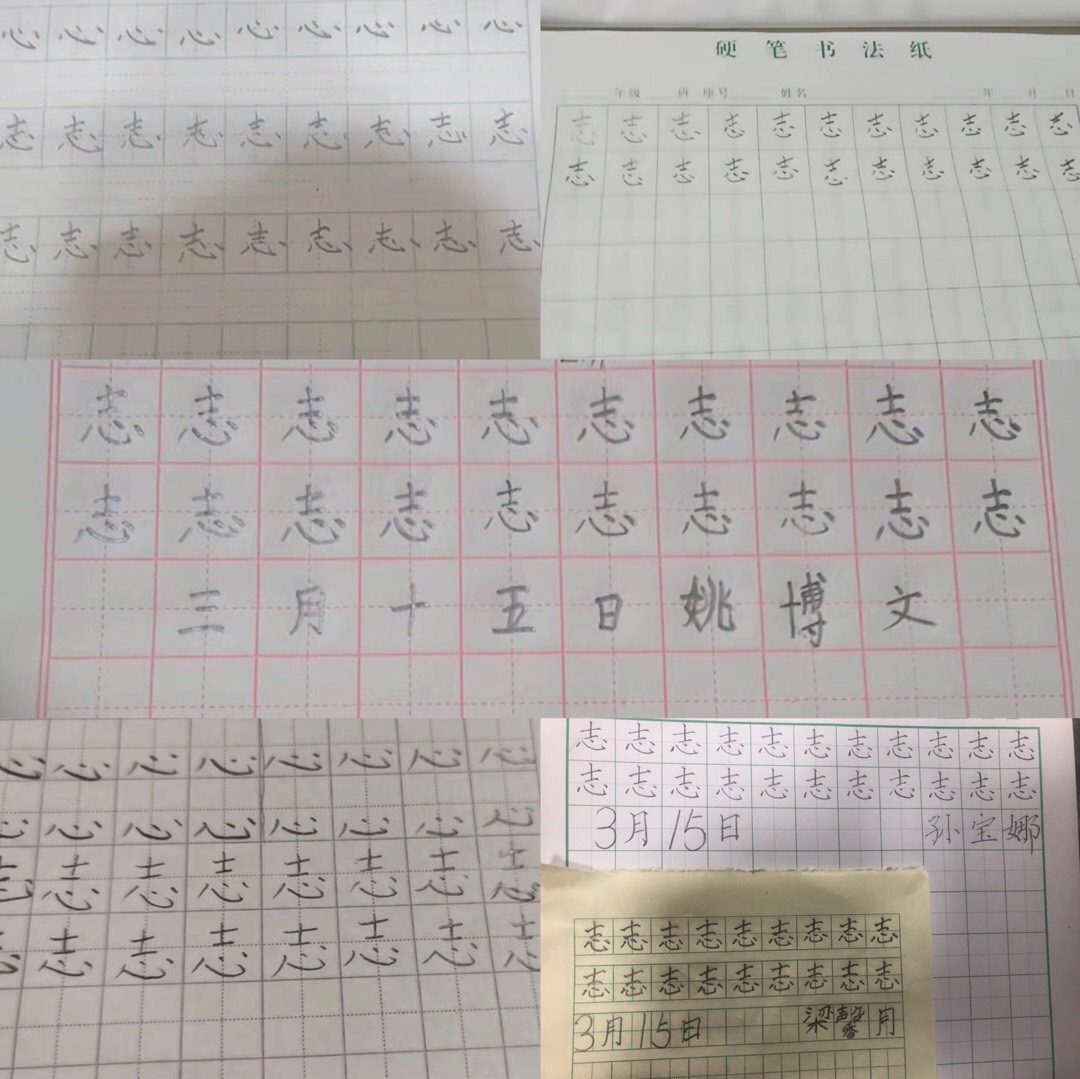 心 心 心 心 心 心 心 心 心
志 志 志 志 志 志 志 志 志
志 志 志 志 志 志 志 志 志
硬笔书法纸
年级 班 座号 姓名 年 月 日
志 志 志 志 志 志 志 志 志 志 志
志 志 志 志 志 志 志 志 志 志 志
志 志 志 志 志 志 志 志 志 志
志 志 志 志 志 志 志 志 志 志
三月十五日姚博文
心 心 心 心 心 心 心 心
心 心 心 心 心 心 心 心
志 志 志 志 志 志 志 志
志 志 志 志 志 志 志 志
志 志 志 志 志 志 志 志 志 志
志 志 志 志 志 志 志 志 志 志
3月15日 孙宝娜
志 志 志 志 志 志 志 志 志
志 志 志 志 志 志 志 志 志
3月15日 梁馨月